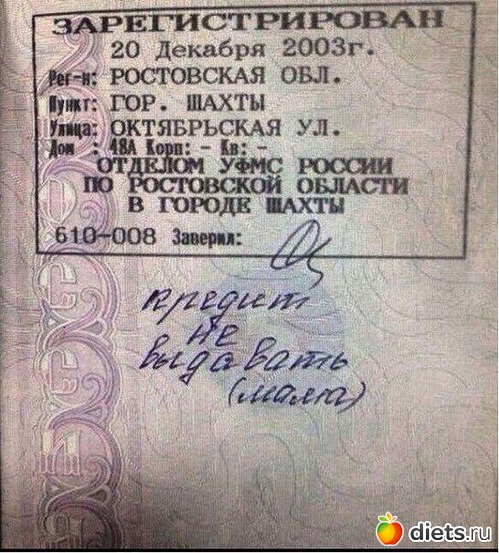 ЗАРЕГИСТРИРОВАН
20 Декабря 2003г.
Рег-н: РОСТОВСКАЯ ОБЛ.
Пункт: ГОР. ШАХТЫ
Улица: ОКТЯБРЬСКАЯ УЛ.
Дом : 48А Корп: - Кв: -
ОТДЕЛОМ УФМС РОССИИ
ПО РОСТОВСКОЙ ОБЛАСТИ
В ГОРОДЕ ШАХТЫ
610-008 Заверил:
кредит
не
выдавать
(мама)
diets.ru